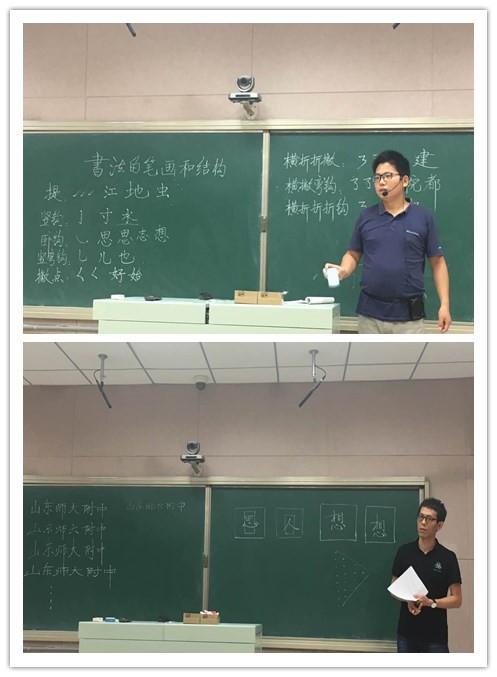 書法的笔画和结构
提: 江 地 虫
竖钩: 亅 寸 水
卧钩: ㇃ 思 思 志 想
竖弯钩: 乚 儿 也
撇点: く く 好 始
横折折撇: 建
横撇弯钩: 都
横折折折钩
山东师大附中
山东师大附中
山东师大附中
山东师大附中
思 囚 想 想